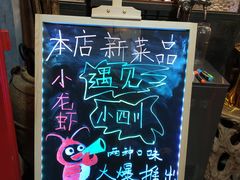 本店新菜品
小龙虾
遇见
小四川
两种口味
火爆推出